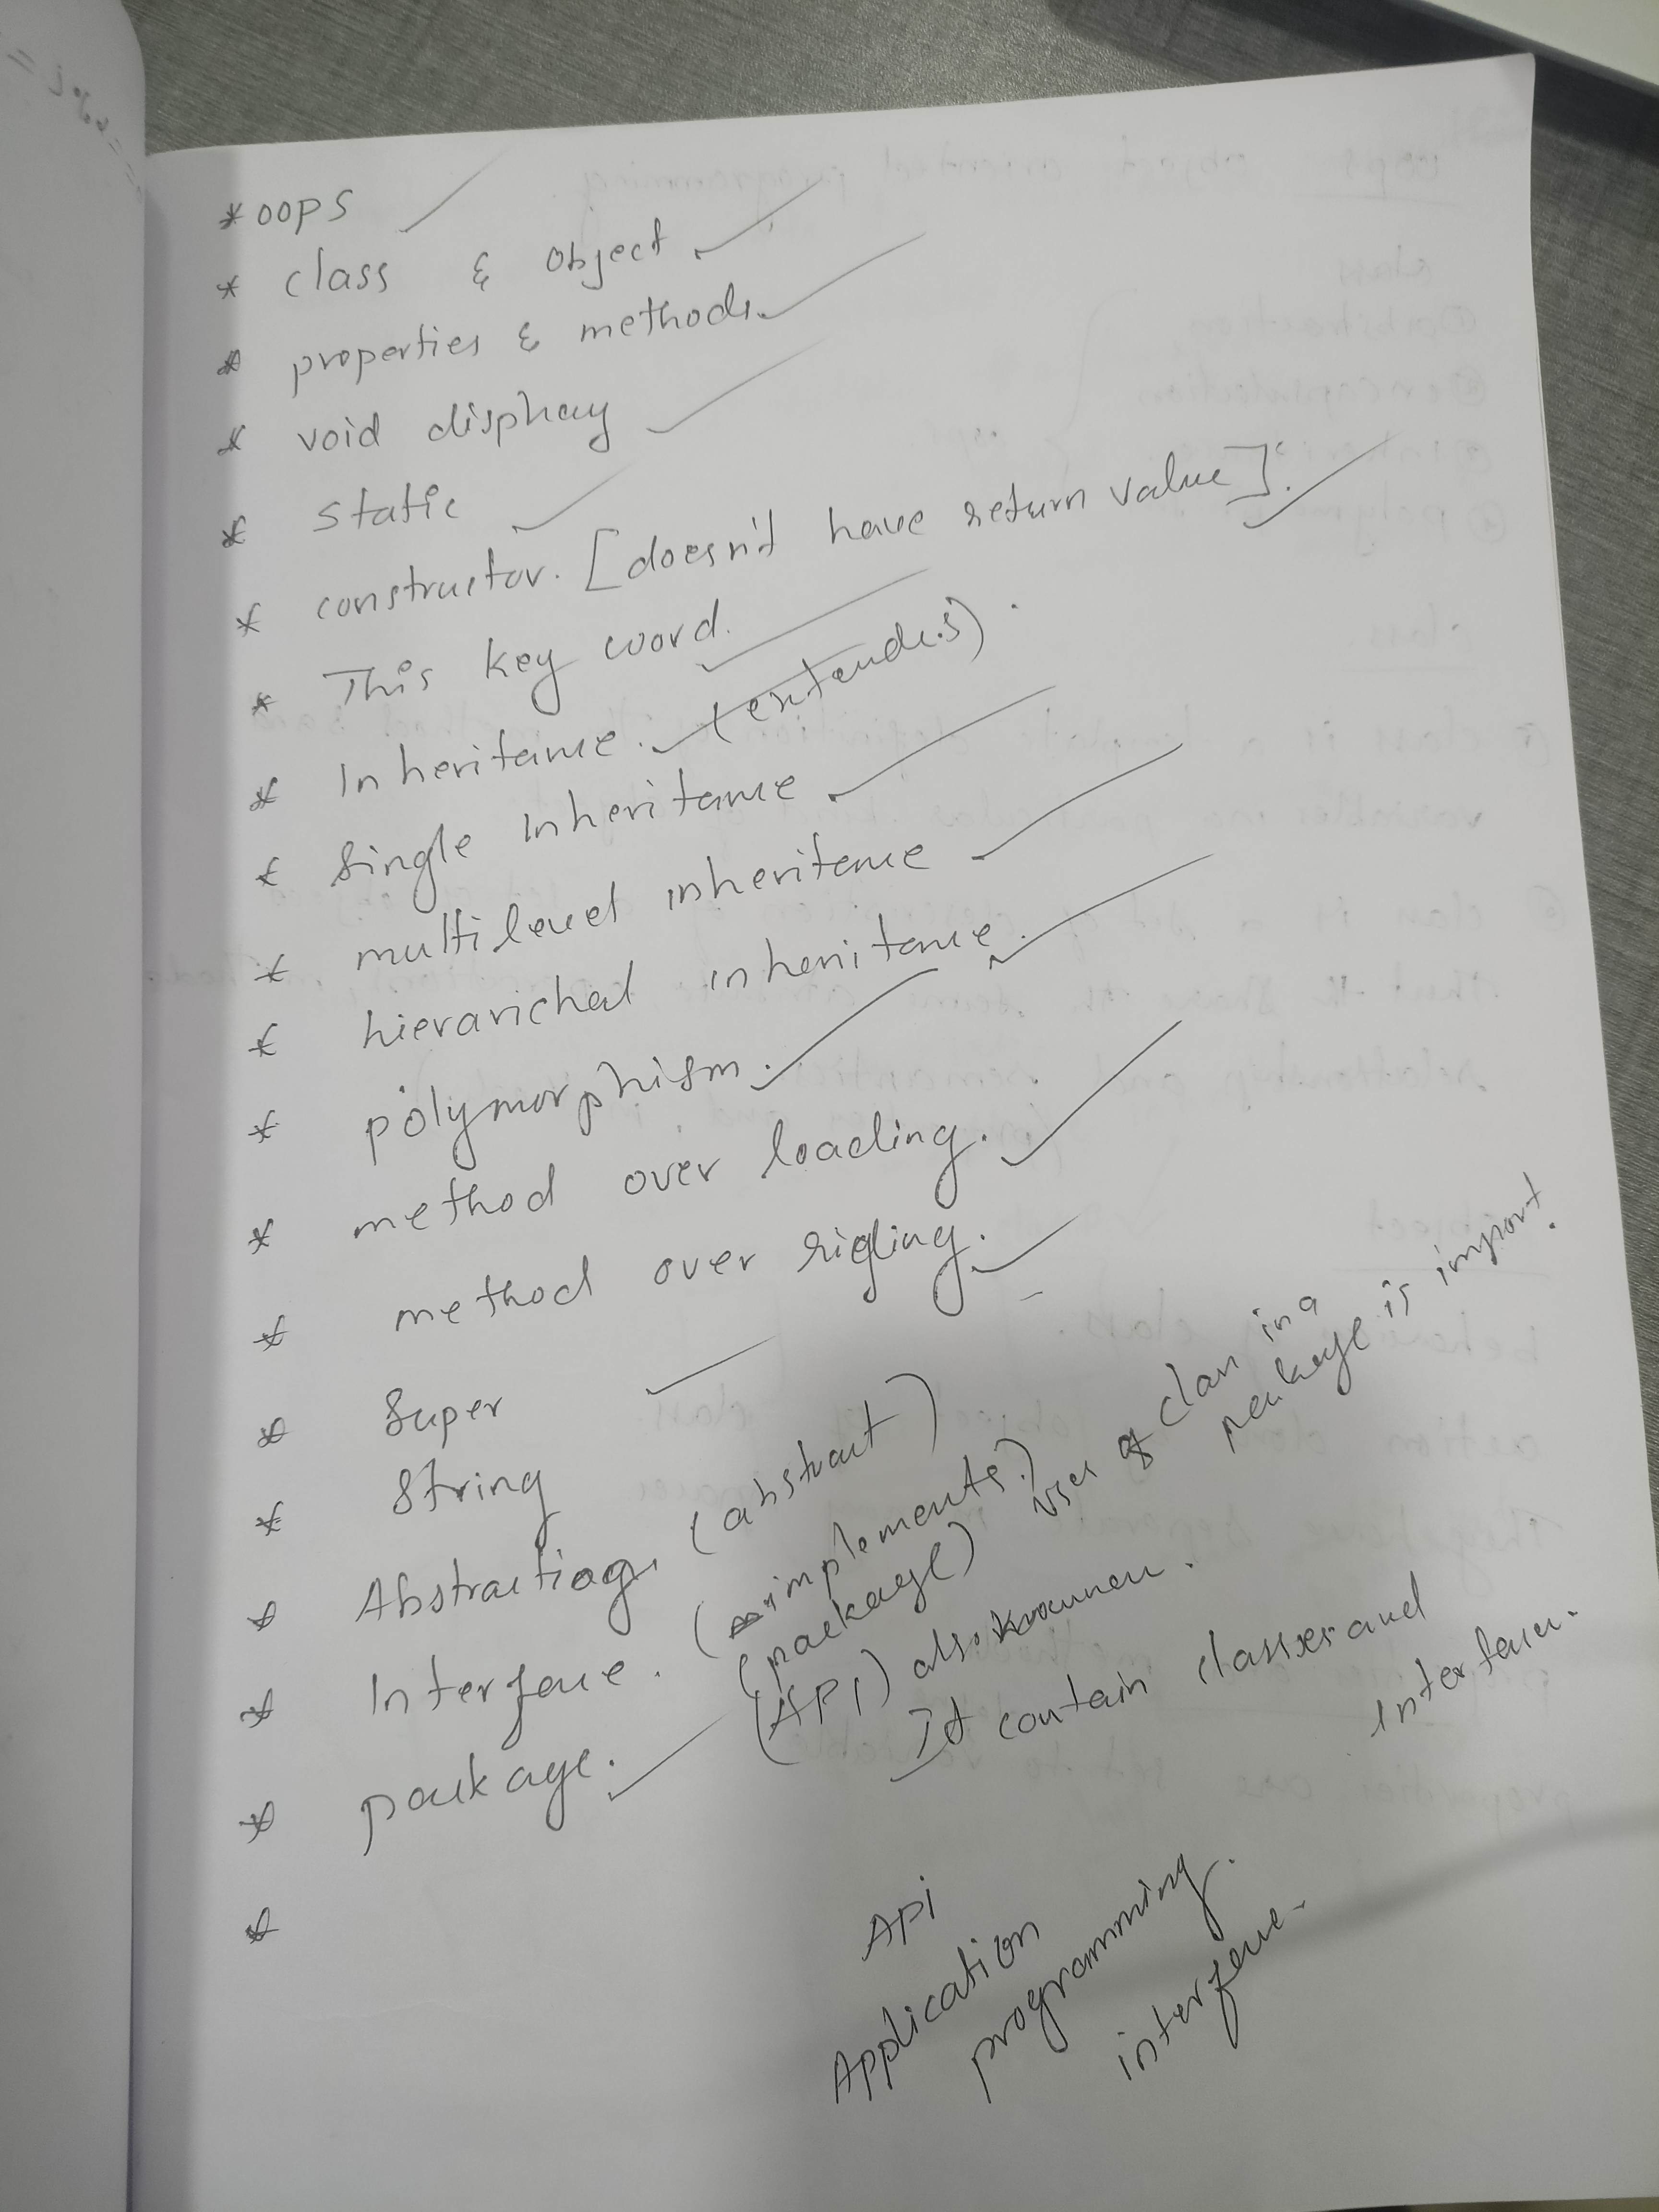 * OOPS
* class & object
* properties & methods.
* void display
* static
* constructor. [doesn't have return value].
* This key word.
* Inheritance. (extends).
* Single Inheritance
* multilevel inheritence
* hierarichal inheritance.
* polymorphism.
* method over loading.
* method over riding.
* Super
* String
* Abstraction. (abstract)
* Interface. (implements)
* package. (package) uses of class in a package is import.
(API) also known.
It contain classes and Interface.
*
API
Application
programming.
interface.